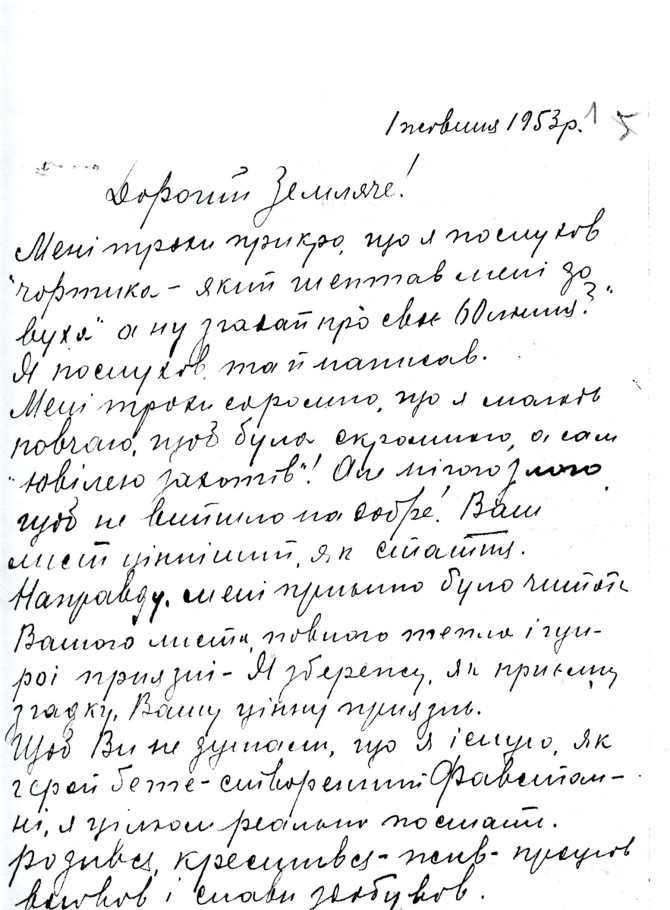 1 жовтня 1953р.
Дорогий Земляче!
Мені трохи прикро, що я послухав
"чортика - який шептав мені до
вуха" а ну згадай про своє 60 ліття?"
Я послухав та й написав.
Мені трохи соромно, що я
повчаю, щоб була скромною, а сам
"ювілею захотів"! Але нічого злого
щоб не вийшло на добре! Ваш
лист цінніший, як стаття.
Направду, мені приємно було читати
Вашого листа, повного тепла і щи-
рої приязні - Я збережу, як приємну
згадку, Вашу цінну приязнь.
Щоб Ви не думали, що я існую, як
герой Ґете - створений Фавстом -
ні, я цілком реальна постать.
родився, крестився - жив - працював
і слави здобував.